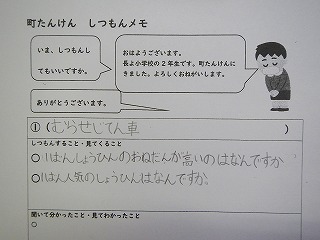 町たんけん しつもんメモ
いま、しつもんし
てもいいですか。
おはようございます。
長よ小学校の2年生です。町たんけんに
きました。よろしくおねがいします。
ありがとうございます。
①(むらせじてん車)
しつもんすること・見てくること
○1ばんしょうひんのねだんが高いのはなんですか
○1ばん人気のしょうひんはなんですか。
聞いて分かったこと・見てわかったこと
○